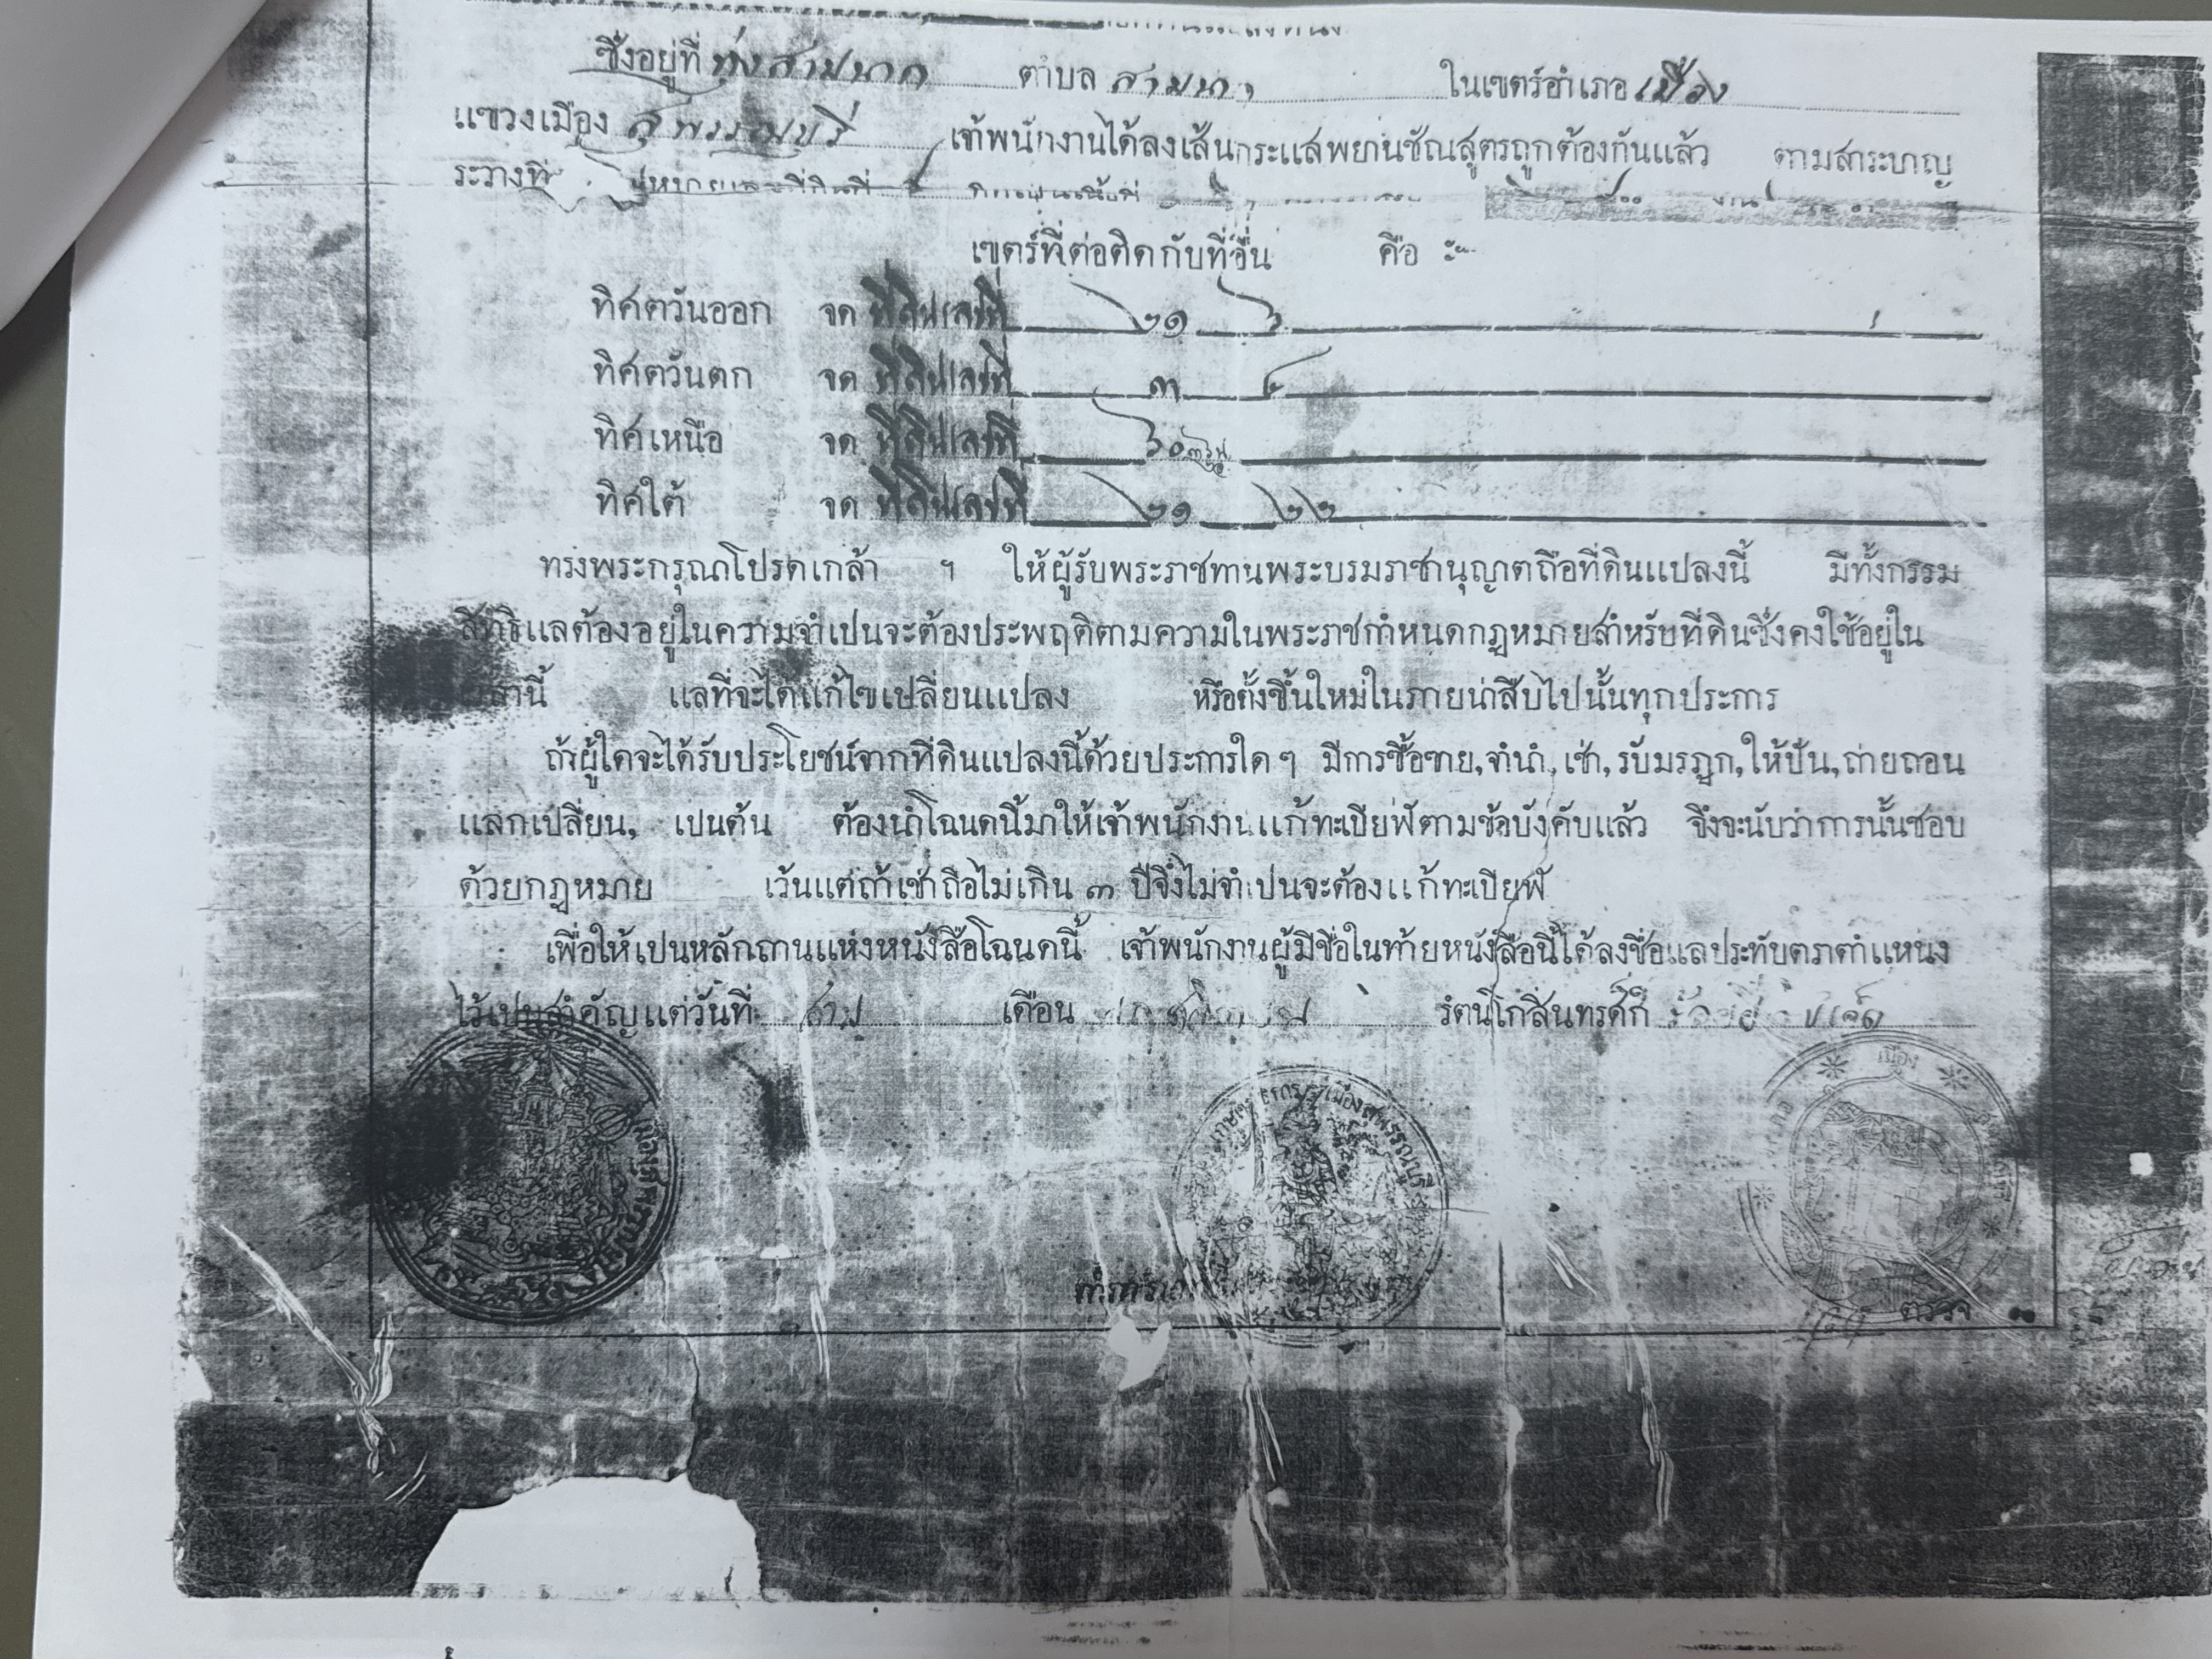 ซึ่งอยู่ที่ ทุ่งสามนาก ตำบล สามนา ในเขตร์อำเภอ เมือง
แขวงเมือง สุพรรณบุรี เจ้าพนักงานได้ลงเส้นกระแสพยานชัณสูตรถูกต้องกันแล้ว ตามสาระบาญ
ระวางที่ หมายเลขที่ดินที่
เขตร์ที่ต่อติดกับที่อื่น คือ ะ–
ทิศตวันออก จด ที่ดินเลขที่ ๒๑ ๖
ทิศตวันตก จด ที่ดินเลขที่ ๓ ๔
ทิศเหนือ จด ที่ดินเลขที่
ทิศใต้ จด ที่ดินเลขที่ ๒๑ ๒๒
ทรงพระกรุณาโปรดเกล้า ฯ ให้ผู้รับพระราชทานพระบรมราชานุญาตถือที่ดินแปลงนี้ มีทั้งกรรม
สิทธิแลต้องอยู่ในความจำเปนจะต้องประพฤติตามความในพระราชกำหนดกฎหมายสำหรับที่ดินซึ่งคงใช้อยู่ใน
เวลานี้ แลที่จะได้แก้ไขเปลี่ยนแปลง หรือตั้งขึ้นใหม่ในภายน่าสืบไปนั้นทุกประการ
ถ้าผู้ใดจะได้รับประโยชน์จากที่ดินแปลงนี้ด้วยประการใด ๆ มีการซื้อขาย, จำนำ, เช่า, รับมรฎก, ให้ปัน, ถ่ายถอน
แลกเปลี่ยน, เปนต้น ต้องนำโฉนดนี้มาให้เจ้าพนักงานแก้ทะเบียฬตามข้อบังคับแล้ว จึงจะนับว่าการนั้นชอบ
ด้วยกฎหมาย เว้นแต่ถ้าเช่าถือไม่เกิน ๓ ปีจึงไม่จำเปนจะต้องแก้ทะเบียฬ
เพื่อให้เปนหลักถานแห่งหนังสือโฉนดนี้ เจ้าพนักงานผู้มีชื่อในท้ายหนังสือนี้ได้ลงชื่อแลประทับตราตำแหน่ง
ไว้เปนสำคัญแต่วันที่ สาม เดือน รัตนโกสินทรศก
เมืองสุพรรณบุรี
เมือง
ตรวจ